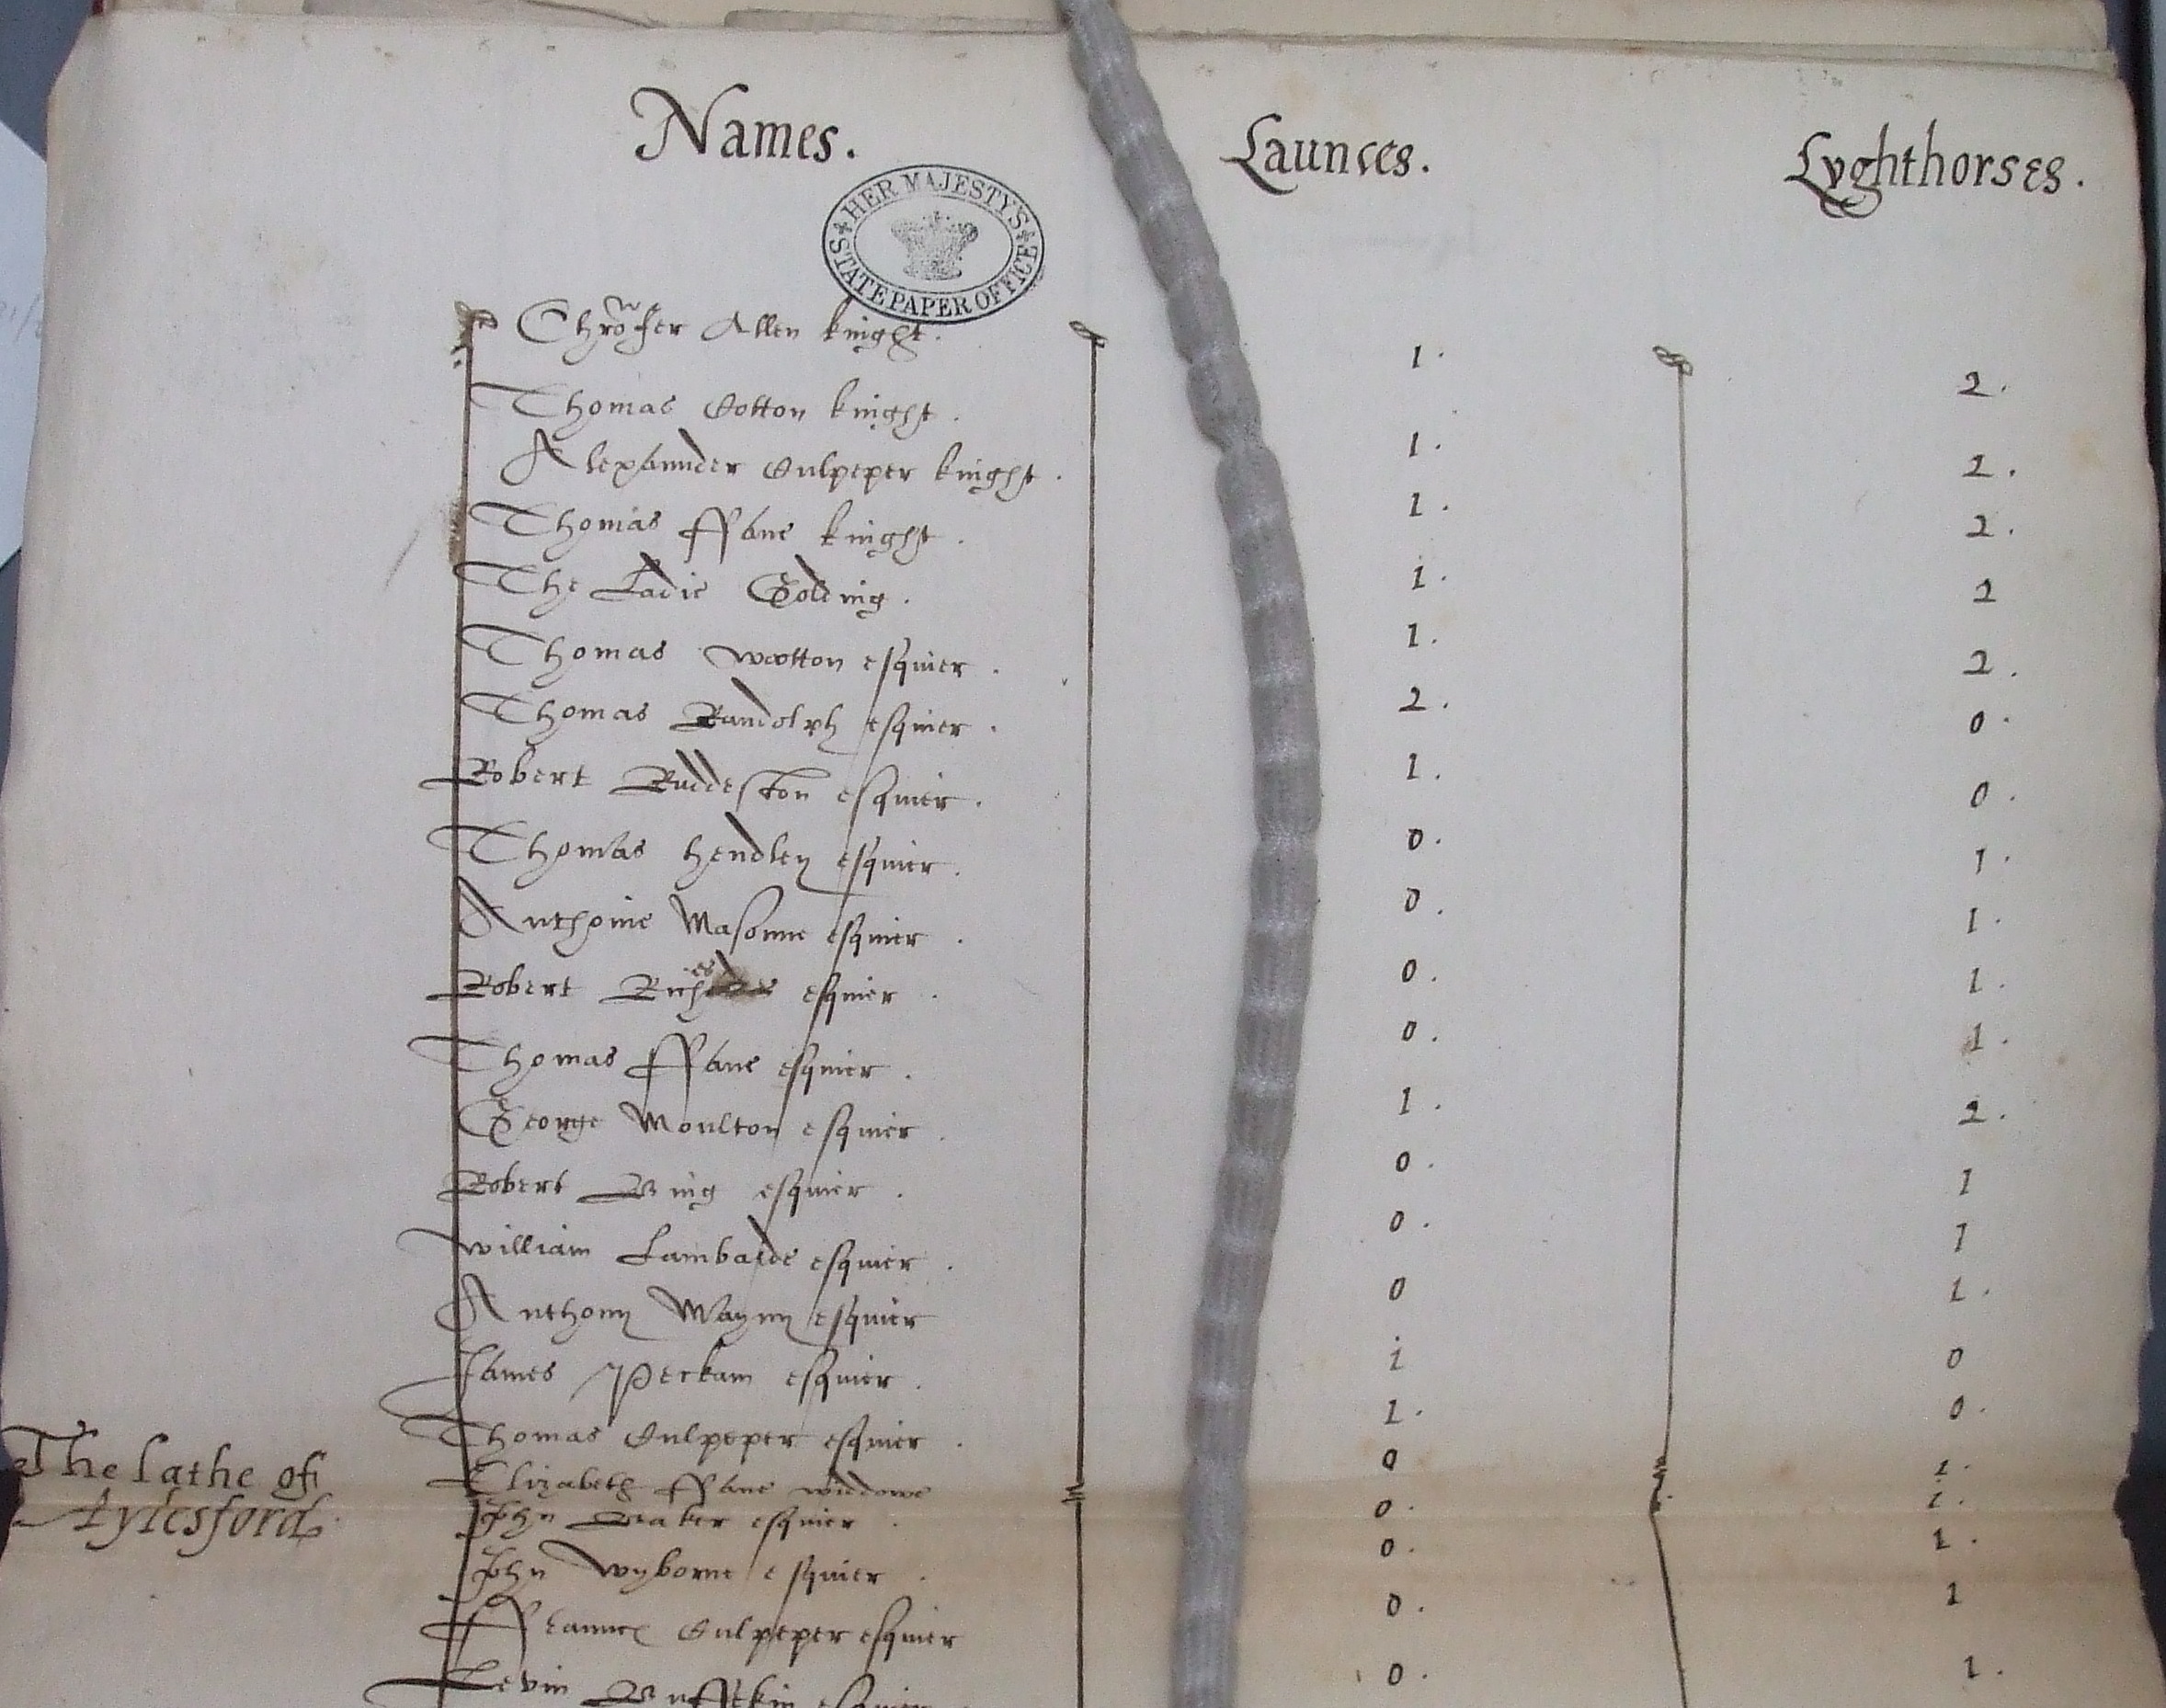 Names. Launces. Lyghthorses.
HER MAJESTY'S STATE PAPER OFFICE
Chrofer Allen knight. 1. 2.
Thomas Cotton knight. 1. 2.
Alexaunder Culpeper knight. 1. 2.
Thomas ffane knight. 1. 2
The Ladie Golding. 1. 2.
Thomas wootton esquier. 2. 0.
Thomas Randolph esquier. 1. 0.
Robert Ruddeston esquier. 0. 1.
Thomas hendley esquier. 0. 1.
Anthonie Masonne esquier. 0. 1.
Robert esquier. 0. 1.
Thomas ffane esquier. 1. 2.
George Moulton esquier. 0. 1
Robert Bing esquier. 0. 1
william Lambarde esquier. 0 1.
Anthony esquier 1 0
James Peckam esquier. 1. 0.
Thomas Culpeper esquier. 0 1.
Elizabeth ffane widdowe 0. 1.
The lathe of
Aylesford.
John Baker esquier. 0. 1.
John wyborne esquier. 0. 1
ffrauncs Culpeper esquier 0. 1.
Levin Buffkin esquier